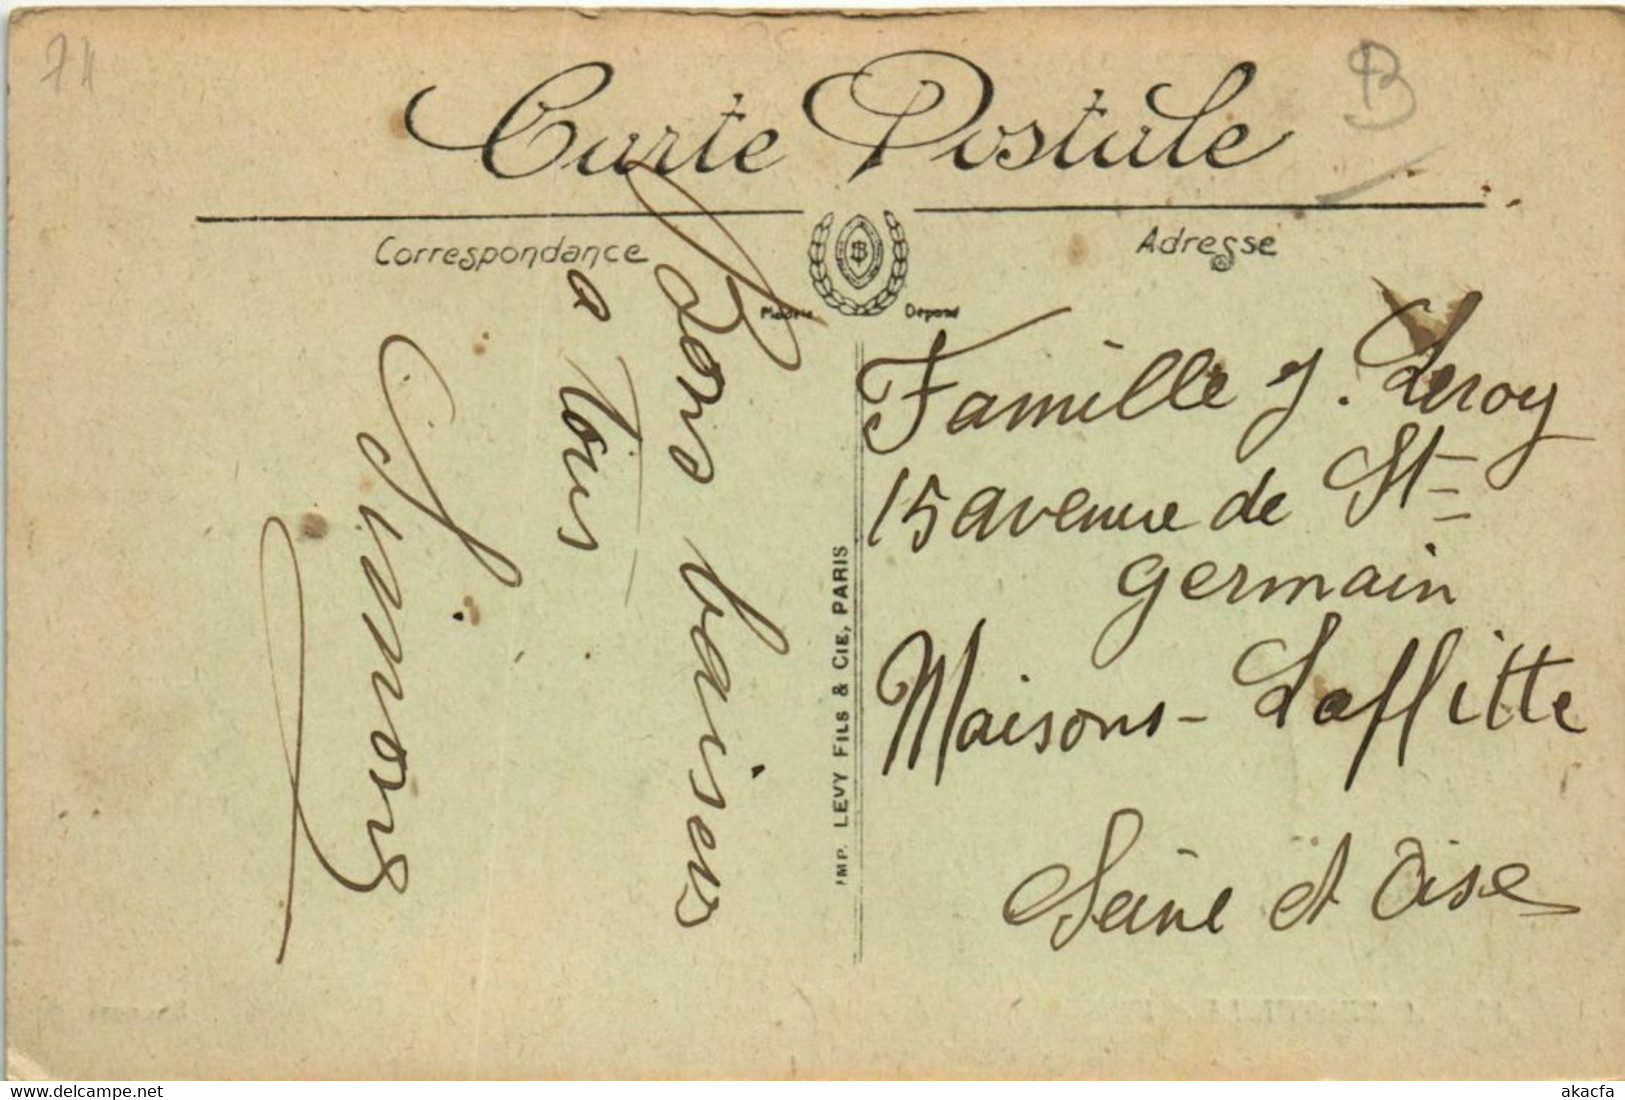 74
B
Carte Postale
Correspondance
Adresse
B
Modèle Déposé
Bons baisers
a tous
Simone
IMP. LEVY FILS & CIE, PARIS
Famille J. Leroy
15 avenue de St
germain
Maisons-Laffitte
Seine et Oise
delcampe.net
akacfa